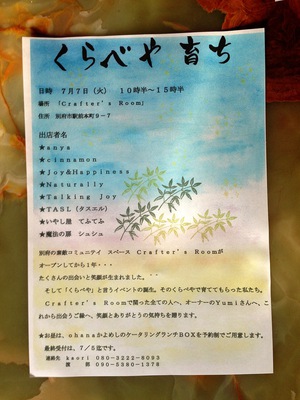 くらべや 育ち
日時 7月7日(火) 10時半~15時半
場所 「Crafter's Room」
住所 別府市駅前本町9-7
出店者名
★anya
★cinnamon
★Joy&Happiness
★Naturally
★Talking Joy
★TASL(タスエル)
★いやし屋 てふてふ
★魔法の扉 シュシュ
別府の素敵コミュニティ スペース Crafter's Roomが
オープンしてから1年・・・
たくさんの出会いと笑顔が生まれました。
そして「くらべや」と言うイベントの誕生。そのくらべやで育ててもらった私たち。
Crafter's Roomで関った全ての人へ、オーナーのYumiさんへ、こ
れから出会うご縁へ、笑顔とありがとうの気持ちを贈ります。
★お昼は、ohanaかよめしのケータリングランチBOXを予約制でご用意します。
最終受付は、7/5迄です。
連絡先 kaori 080-3222-8093
090-5380-1376